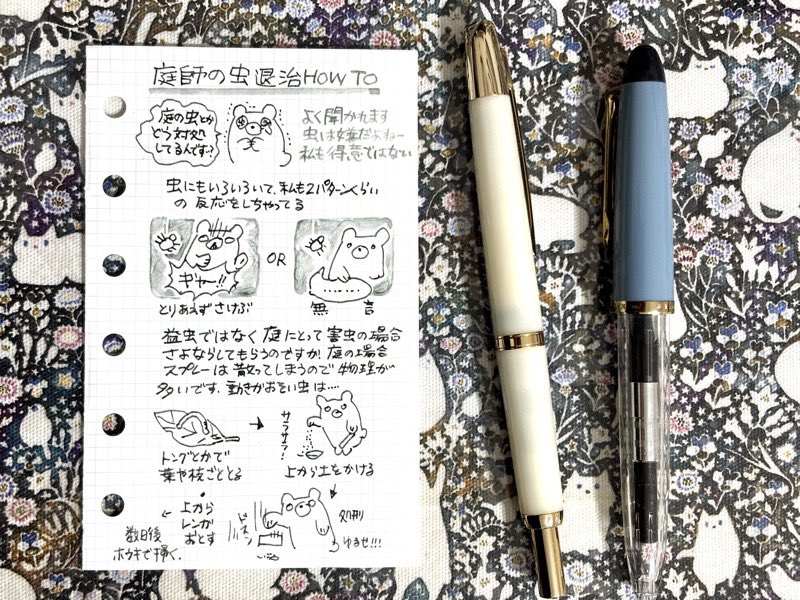 庭師の虫退治HOW TO
庭の虫とか
どう対処
してるんです?
よく聞かれます
虫は嫌だよねー
私も得意ではない
虫にもいろいろいて、私も2パターンくらい
の反応をしちゃってる
ギャー!!
OR
………
とりあえずさけぶ
無言
益虫ではなく庭にとって害虫の場合
さよならしてもらうのですが、庭の場合
スプレーは散ってしまうので物理が
多いです。動きがおそい虫は…
トングとかで
葉や枝ごととる
サラサラ
上から土をかける
処刑
ゆるせ!!!
ドスン
上から
レンガ
おとす
数日後
ホウキで掃く.